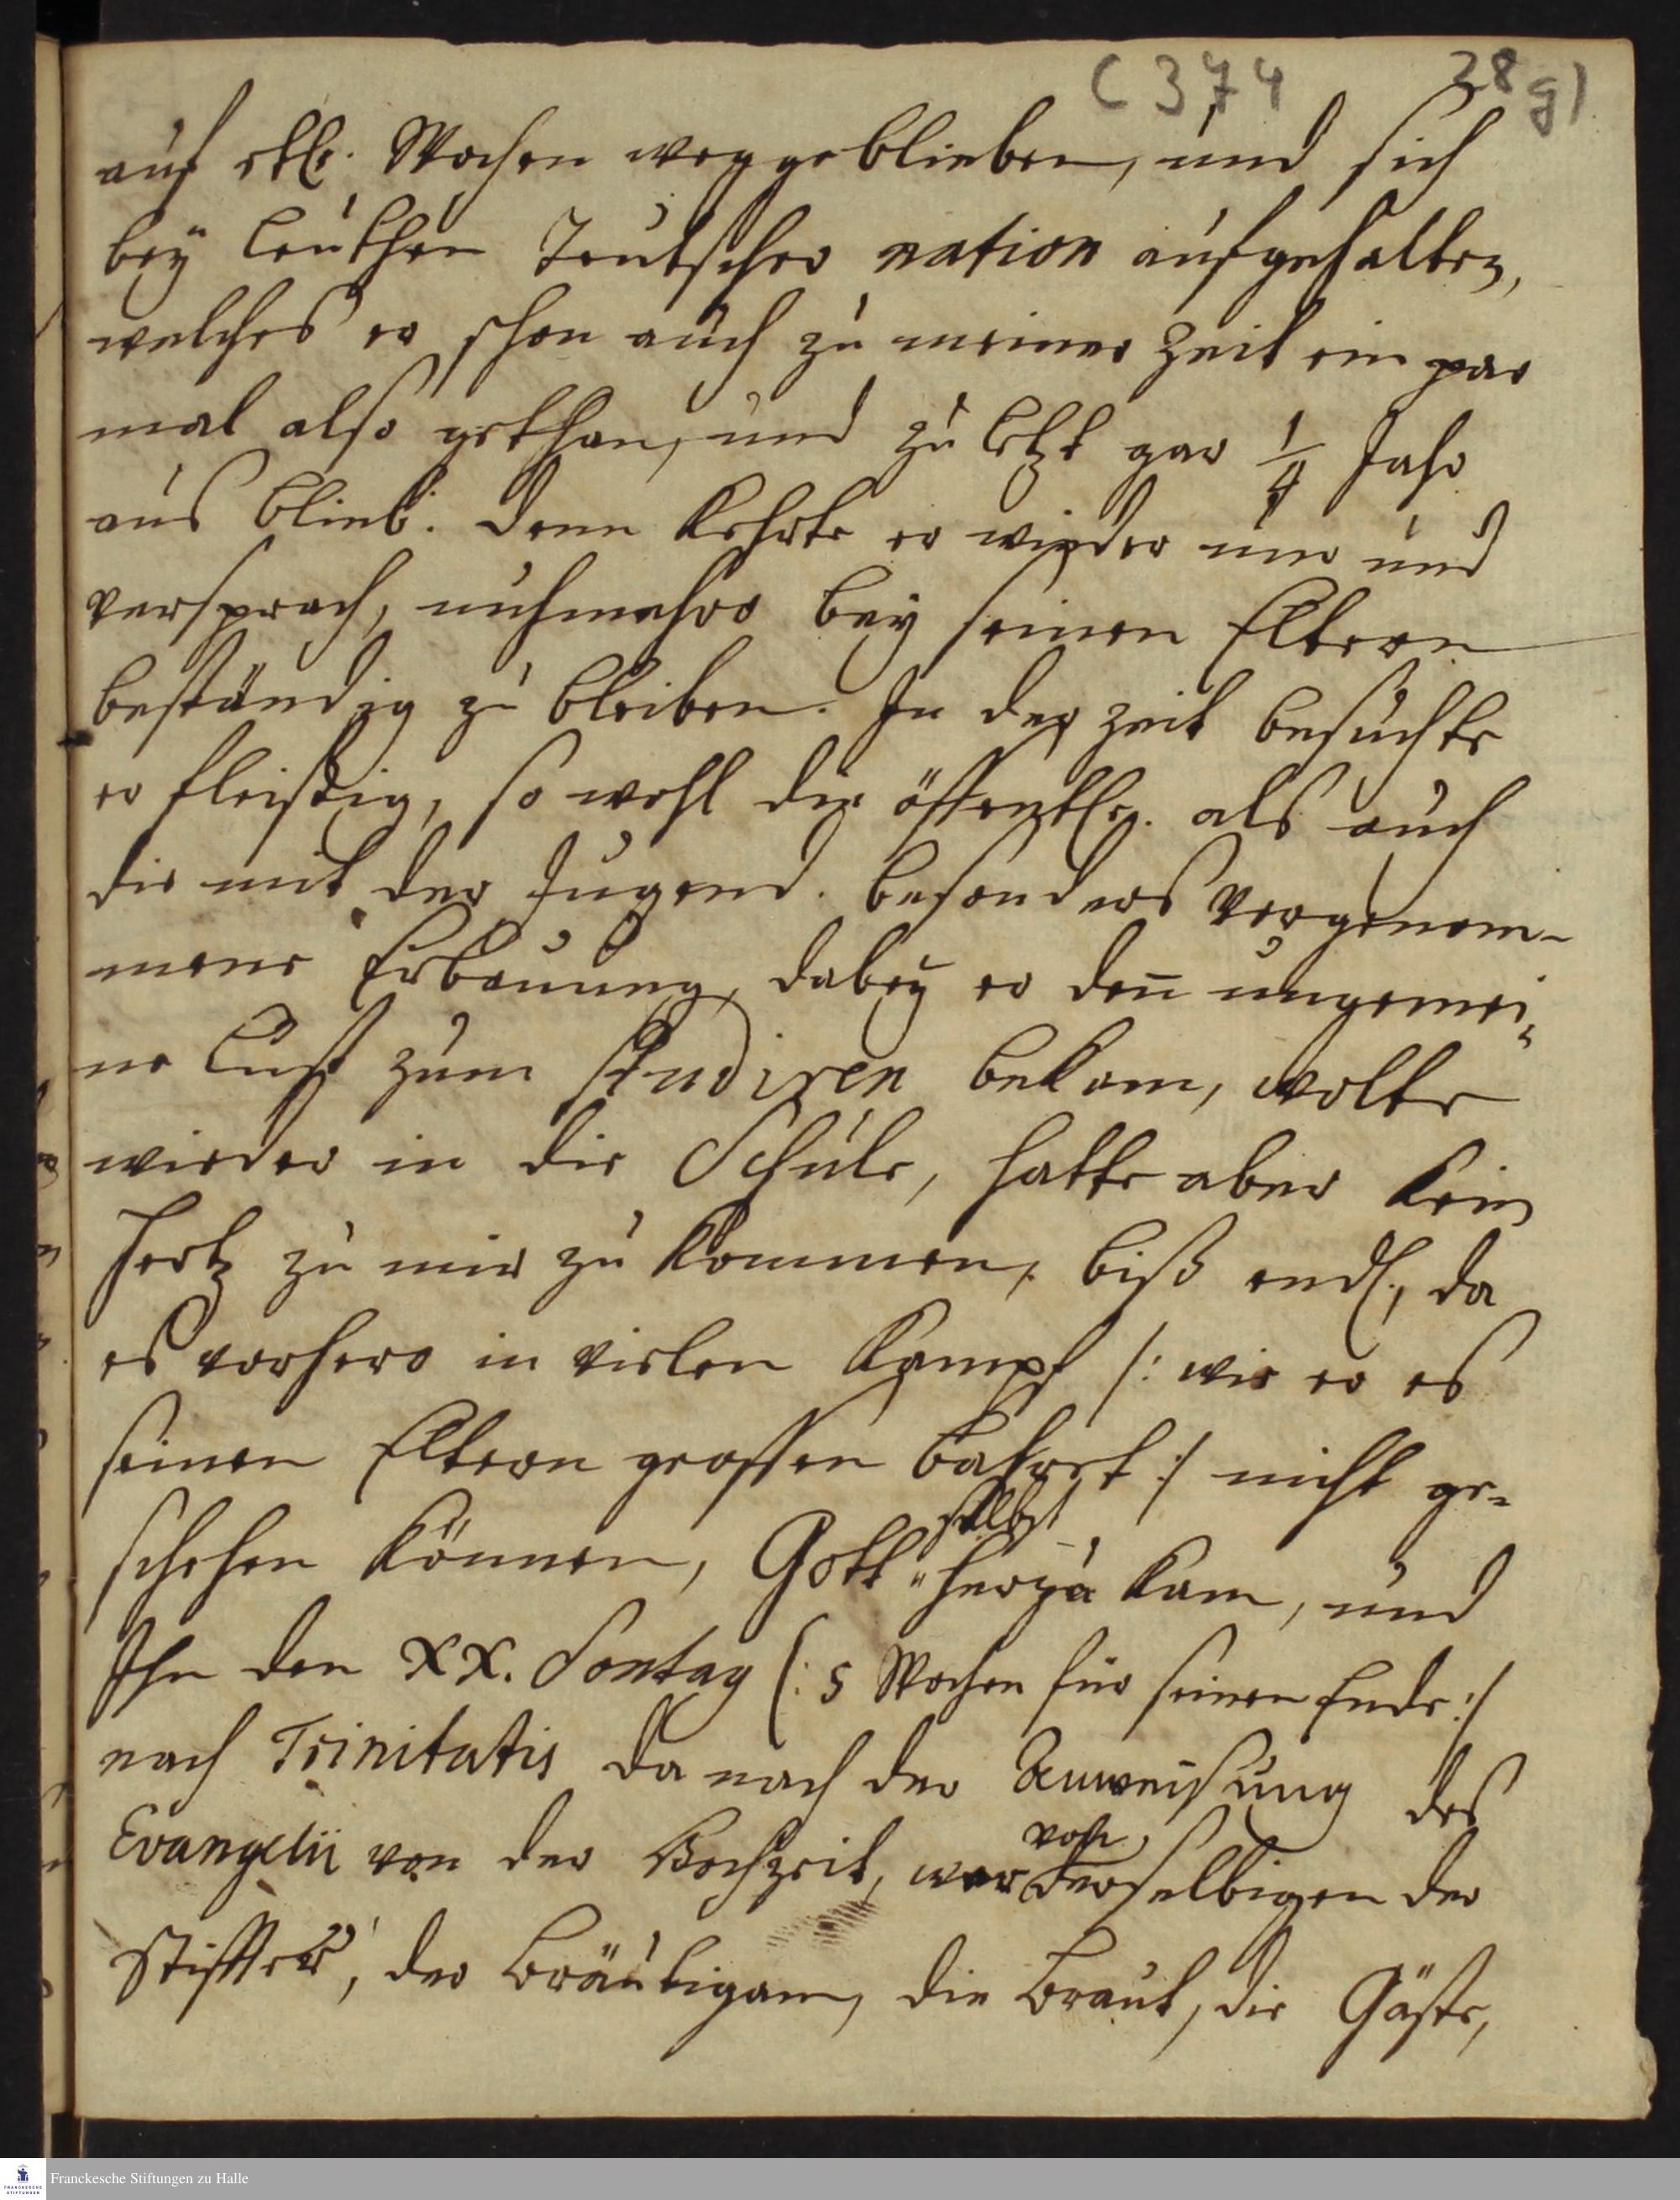 C 374 28 g)
auf etl. Wochen weggeblieben, und sich
bey Leuthen Teutscher nation aufgehalten,
welches er schon auch zu meiner Zeit ein par
mal also gethan, und zu letzt gar 1/4 Jahr
aus blieb. Denn kehrte er wieder um und
versprach, nuhmehro bey seinen Eltern
beständig zu bleiben. In der Zeit besuchte
er fleißig, so wohl die öffentl. als auch
die mit der Jugend. besonders vorgenom-
mene Erbauung, dabey er den̅ ungemei-
ne Lust zum studiren bekam, wolte
wieder in die Schule, hatte aber kein
Hertz zu mir zu kommen, biß endl., da
es vorhero in vielen Kampf /: wie er es
seinen Eltern grossen  :/ nicht ge-
schehen können, Gott selbst herzu kam, und
Ihn den XX. Sontag (: 5 Wochen für seinen Ende :/
nach Trinitatis da nach der Anweisung des
Evangelii von der Hochzeit, wer von derselbigen der
Stiffter, der Bräutigam, die Braut, die Gäste,
Franckesche Stiftungen zu Halle
FRANCKESCHE STIFTUNGEN